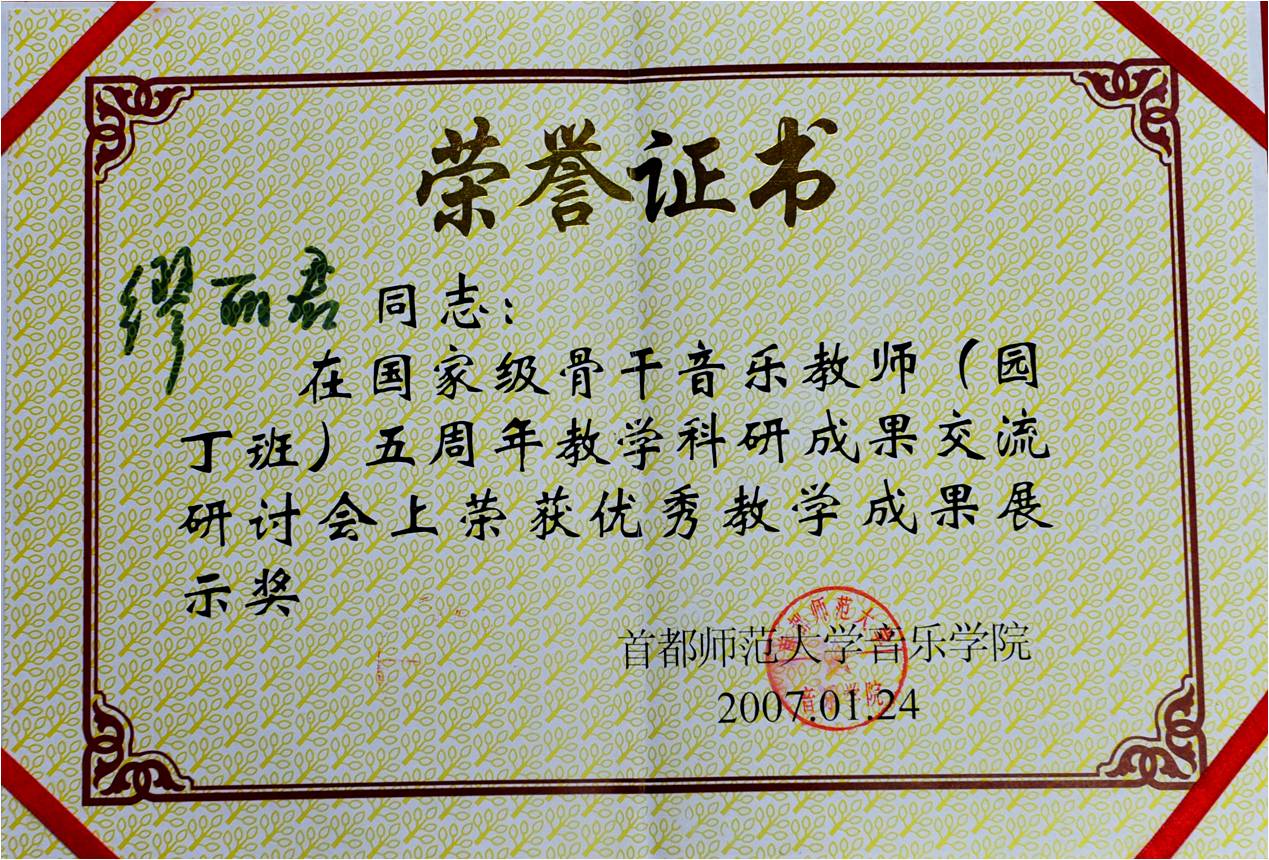 荣誉证书
缪丽君 同志：
在国家级骨干音乐教师（园
丁班）五周年教学科研成果交流
研讨会上荣获优秀教学成果展
示奖
首都师范大学音乐学院
2007.01.24
首都师范大学
音乐学院